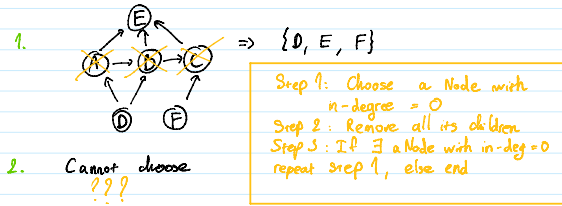 E
1. A B C => {D, E, F}
D F
Step 1: Choose a Node with
in-degree = 0
Step 2: Remove all its children
Step 3: If ∃ a Node with in-deg = 0
repeat step 1, else end
2. Cannot choose
???